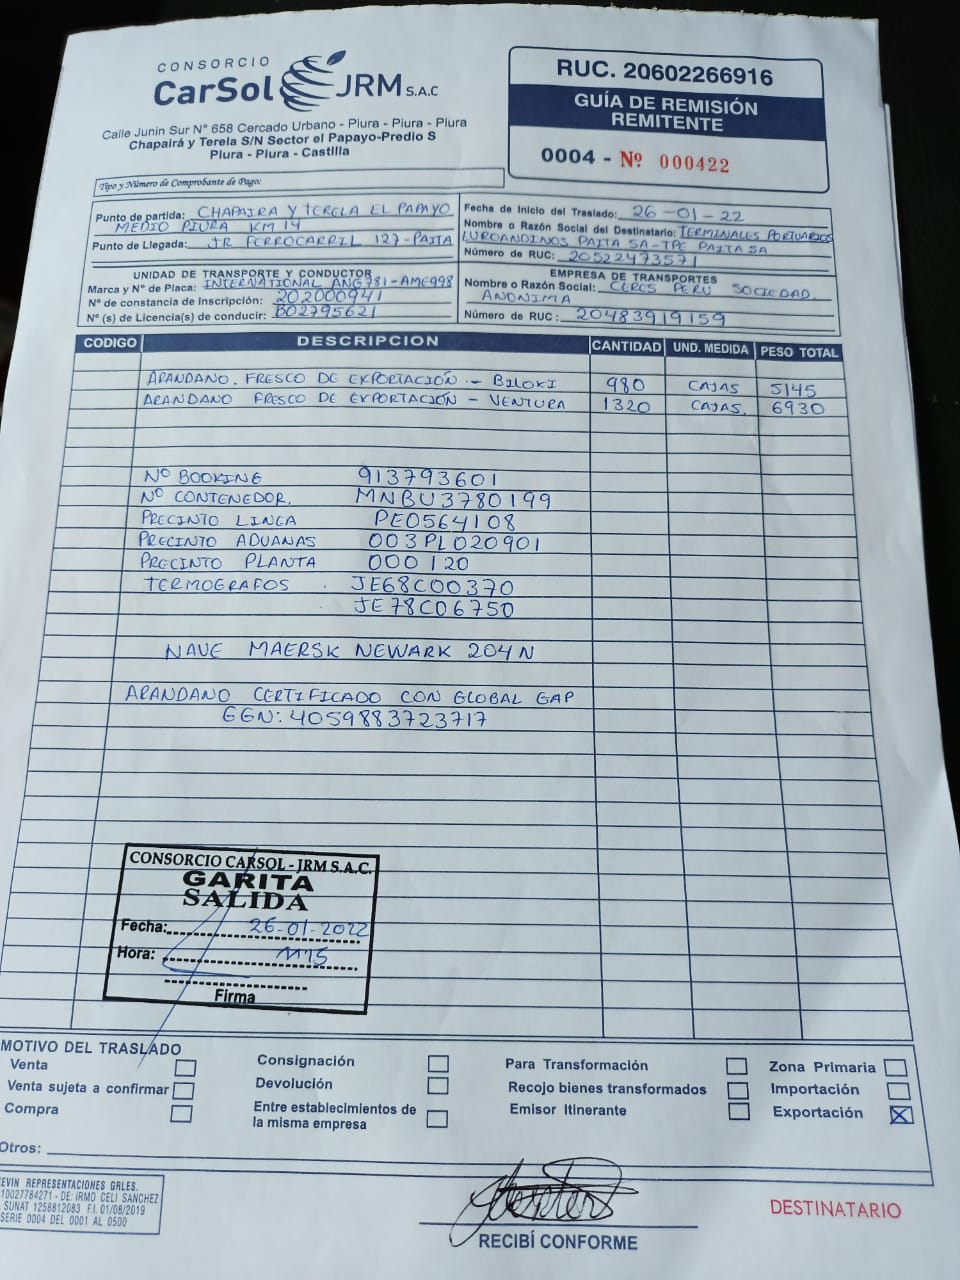 CONSORCIO
CarSol JRM S.A.C
Calle Junin Sur N° 658 Cercado Urbano - Piura - Piura - Piura
Chapairá y Terela S/N Sector el Papayo-Predio S
Piura - Piura - Castilla
RUC. 20602266916
GUÍA DE REMISIÓN
REMITENTE
0004 - Nº 000422
Tipo y Número de Comprobante de Pago:
Punto de partida: CHAPAIRA Y TERELA EL PAPAYO
MEDIO PIURA KM 14
Punto de Llegada: JR FERROCARRIL 127-PAITA
Fecha de Inicio del Traslado: 26-01-22
Nombre o Razón Social del Destinatario: TERMINALES PORTUARIOS
EUROANDINOS PAITA SA-TPE PAITA SA
Número de RUC: 20522473571
UNIDAD DE TRANSPORTE Y CONDUCTOR
Marca y Nº de Placa: INTERNATIONAL ANG781-AME998
Nº de constancia de Inscripción: 202000941
Nº (s) de Licencia(s) de conducir: B02795621
EMPRESA DE TRANSPORTES
Nombre o Razón Social: CERES PERU SOCIEDAD
ANONIMA
Número de RUC: 20483919159
CODIGO DESCRIPCION CANTIDAD UND. MEDIDA PESO TOTAL
ARANDANO. FRESCO DE EXPORTACIÓN - BILOXI 980 CAJAS 5145
ARANDANO FRESCO DE EXPORTACIÓN - VENTURA 1320 CAJAS. 6930
Nº BOOKING 913793601
Nº CONTENEDOR. MNBU3780199
PRECINTO LINEA PE0564108
PRECINTO ADUANAS 003PL020901
PRECINTO PLANTA 000120
TERMOGRAFOS JE68C00370
JE78C06750
NAVE MAERSK NEWARK 204N
ARANDANO CERTIFICADO CON GLOBAL GAP
GGN: 4059883723717
CONSORCIO CARSOL - JRM S.A.C.
GARITA
SALIDA
Fecha: 26-01-2022
Hora: 1115
Firma
MOTIVO DEL TRASLADO
Venta
Venta sujeta a confirmar
Compra
Consignación
Devolución
Entre establecimientos de
la misma empresa
Para Transformación
Recojo bienes transformados
Emisor Itinerante
Zona Primaria
Importación
Exportación X
Otros:
KEVIN REPRESENTACIONES GRLES.
10027784271 - DE: IRMO CELI SANCHEZ
SUNAT 1258812083 F.I. 01/08/2019
SERIE 0004 DEL 0001 AL 0500
RECIBÍ CONFORME
DESTINATARIO